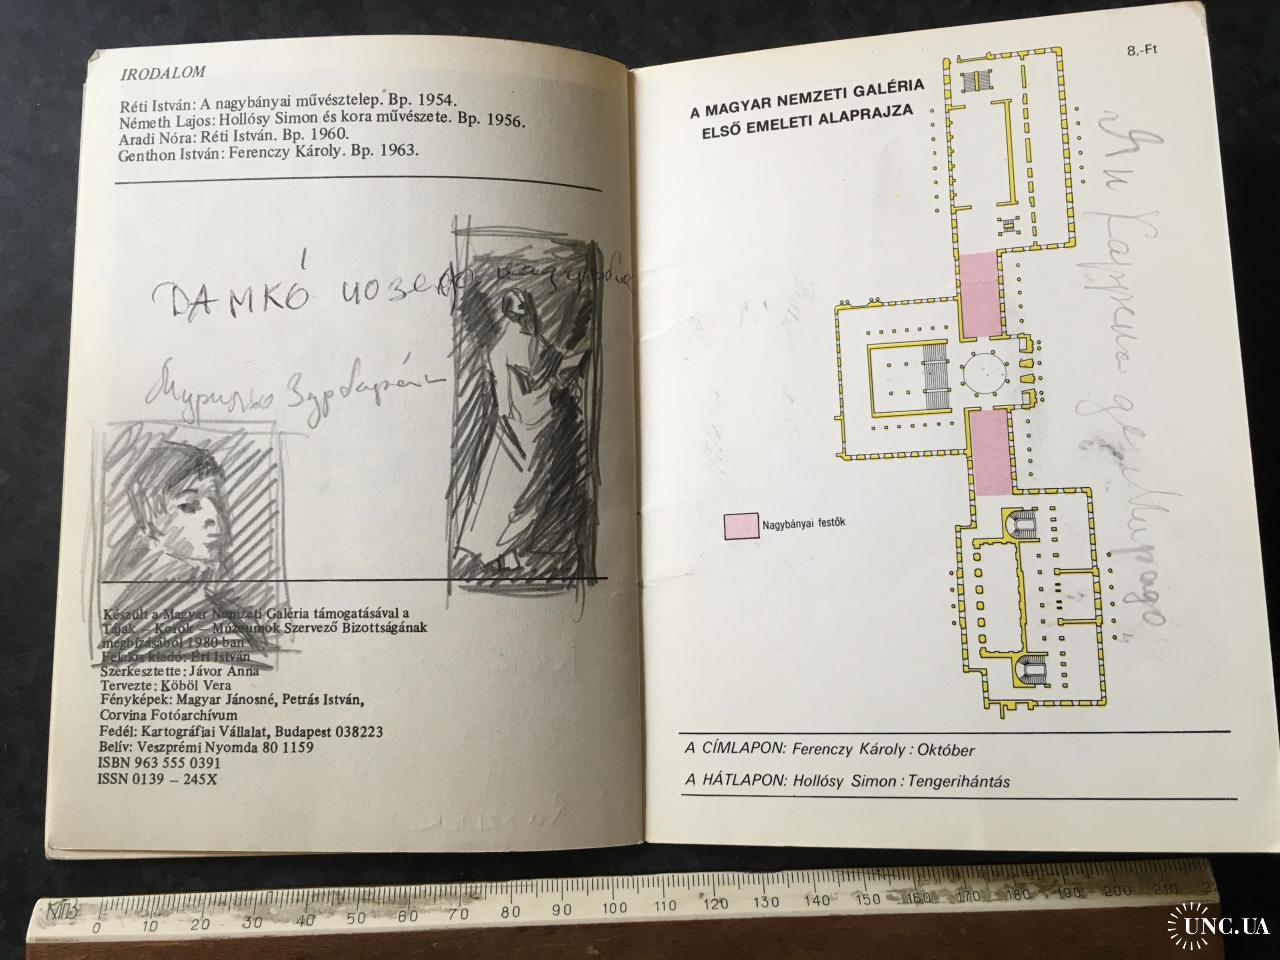 IRODALOM
Réti István: A nagybányai művésztelep. Bp. 1954.
Németh Lajos: Hollósy Simon és kora művészete. Bp. 1956.
Aradi Nóra: Réti István. Bp. 1960.
Genthon István: Ferenczy Károly. Bp. 1963.
DAMKÓ
Készült a Magyar Nemzeti Galéria támogatásával a
Tájak – Korok – Múzeumok Szervező Bizottságának
megbízásából 1980-ban
Felelős kiadó: Éri István
Szerkesztette: Jávor Anna
Tervezte: Köböl Vera
Fényképek: Magyar Jánosné, Petrás István,
Corvina Fotóarchívum
Fedél: Kartográfiai Vállalat, Budapest 038223
Belív: Veszprémi Nyomda 80 1159
ISBN 963 555 0391
ISSN 0139 – 245X
8,-Ft
A MAGYAR NEMZETI GALÉRIA
ELSŐ EMELETI ALAPRAJZA
Nagybányai festők
A CÍMLAPON: Ferenczy Károly : Október
A HÁTLAPON: Hollósy Simon : Tengerihántás
0 10 20 30 40 50 60 70 80 90 100 110 120 130 140 150 160 170 180 190 200 210
UNC.UA